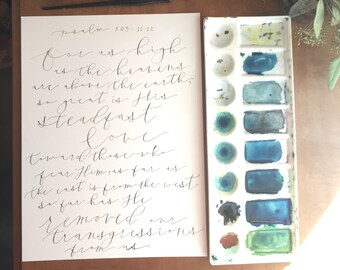 psalm 103:11-12
for as high
as the heavens
are above the earth,
so great is His
steadfast
love
toward those who
fear Him; as far as
the east is from the west
so far has He
removed our
transgressions
from us